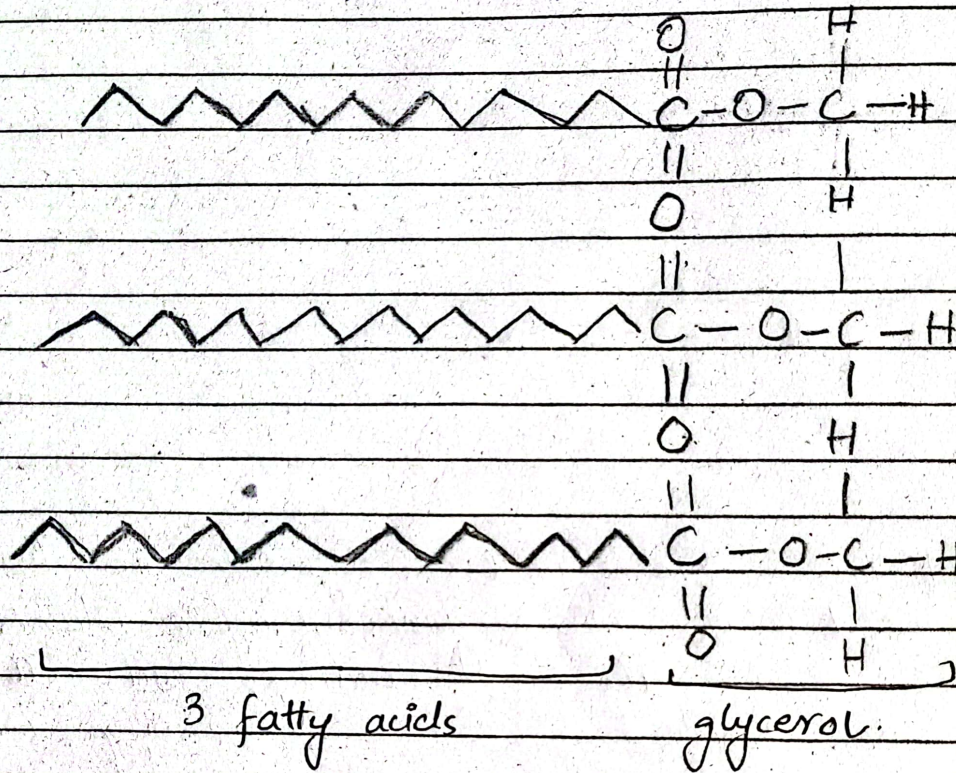 O H
|| |
C-O-C-H
|| |
O H
|| |
C-O-C-H
|| |
O H
|| |
C-O-C-H
|| |
O H
3 fatty acids glycerol.